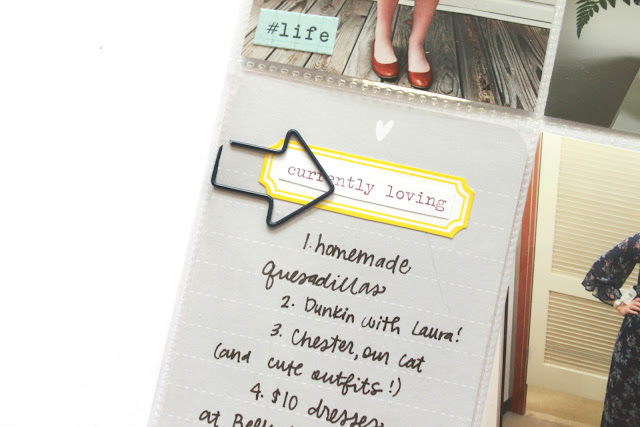 #life
currently loving
1. homemade
quesadillas
2. Dunkin with Laura!
3. Chester, our cat
(and cute outfits!)
4. $10 dresses
at